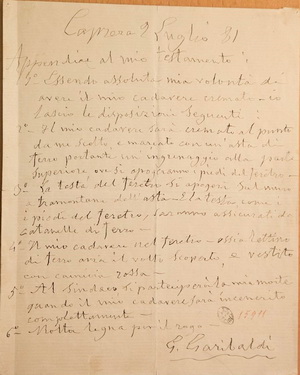 Caprera 2 Luglio 81
Appendice al mio testamento:
1º Essendo assoluta mia volontà di
avere il mio cadavere cremato io
lascio le disposizioni seguenti
2º Il mio cadavere sarà cremato al punto
da me scelto e marcato con un'asta di
ferro
superiore ove si i piedi del feretro
3º La testa del feretro si sul muro
a tramontana dell'asta E la testa come i
i piedi del feretro, saranno assicurati da
catenelle di ferro
4º Il mio cadavere nel feretro ossia lettino
di ferro avrà il volto scoperto, e vestito
con camicia rossa
5º Al Sindaco si parteciperà la mia morte
quando il mio cadavere sarà incenerito
completamente
6º Molta legna per il rogo
G. Garibaldi